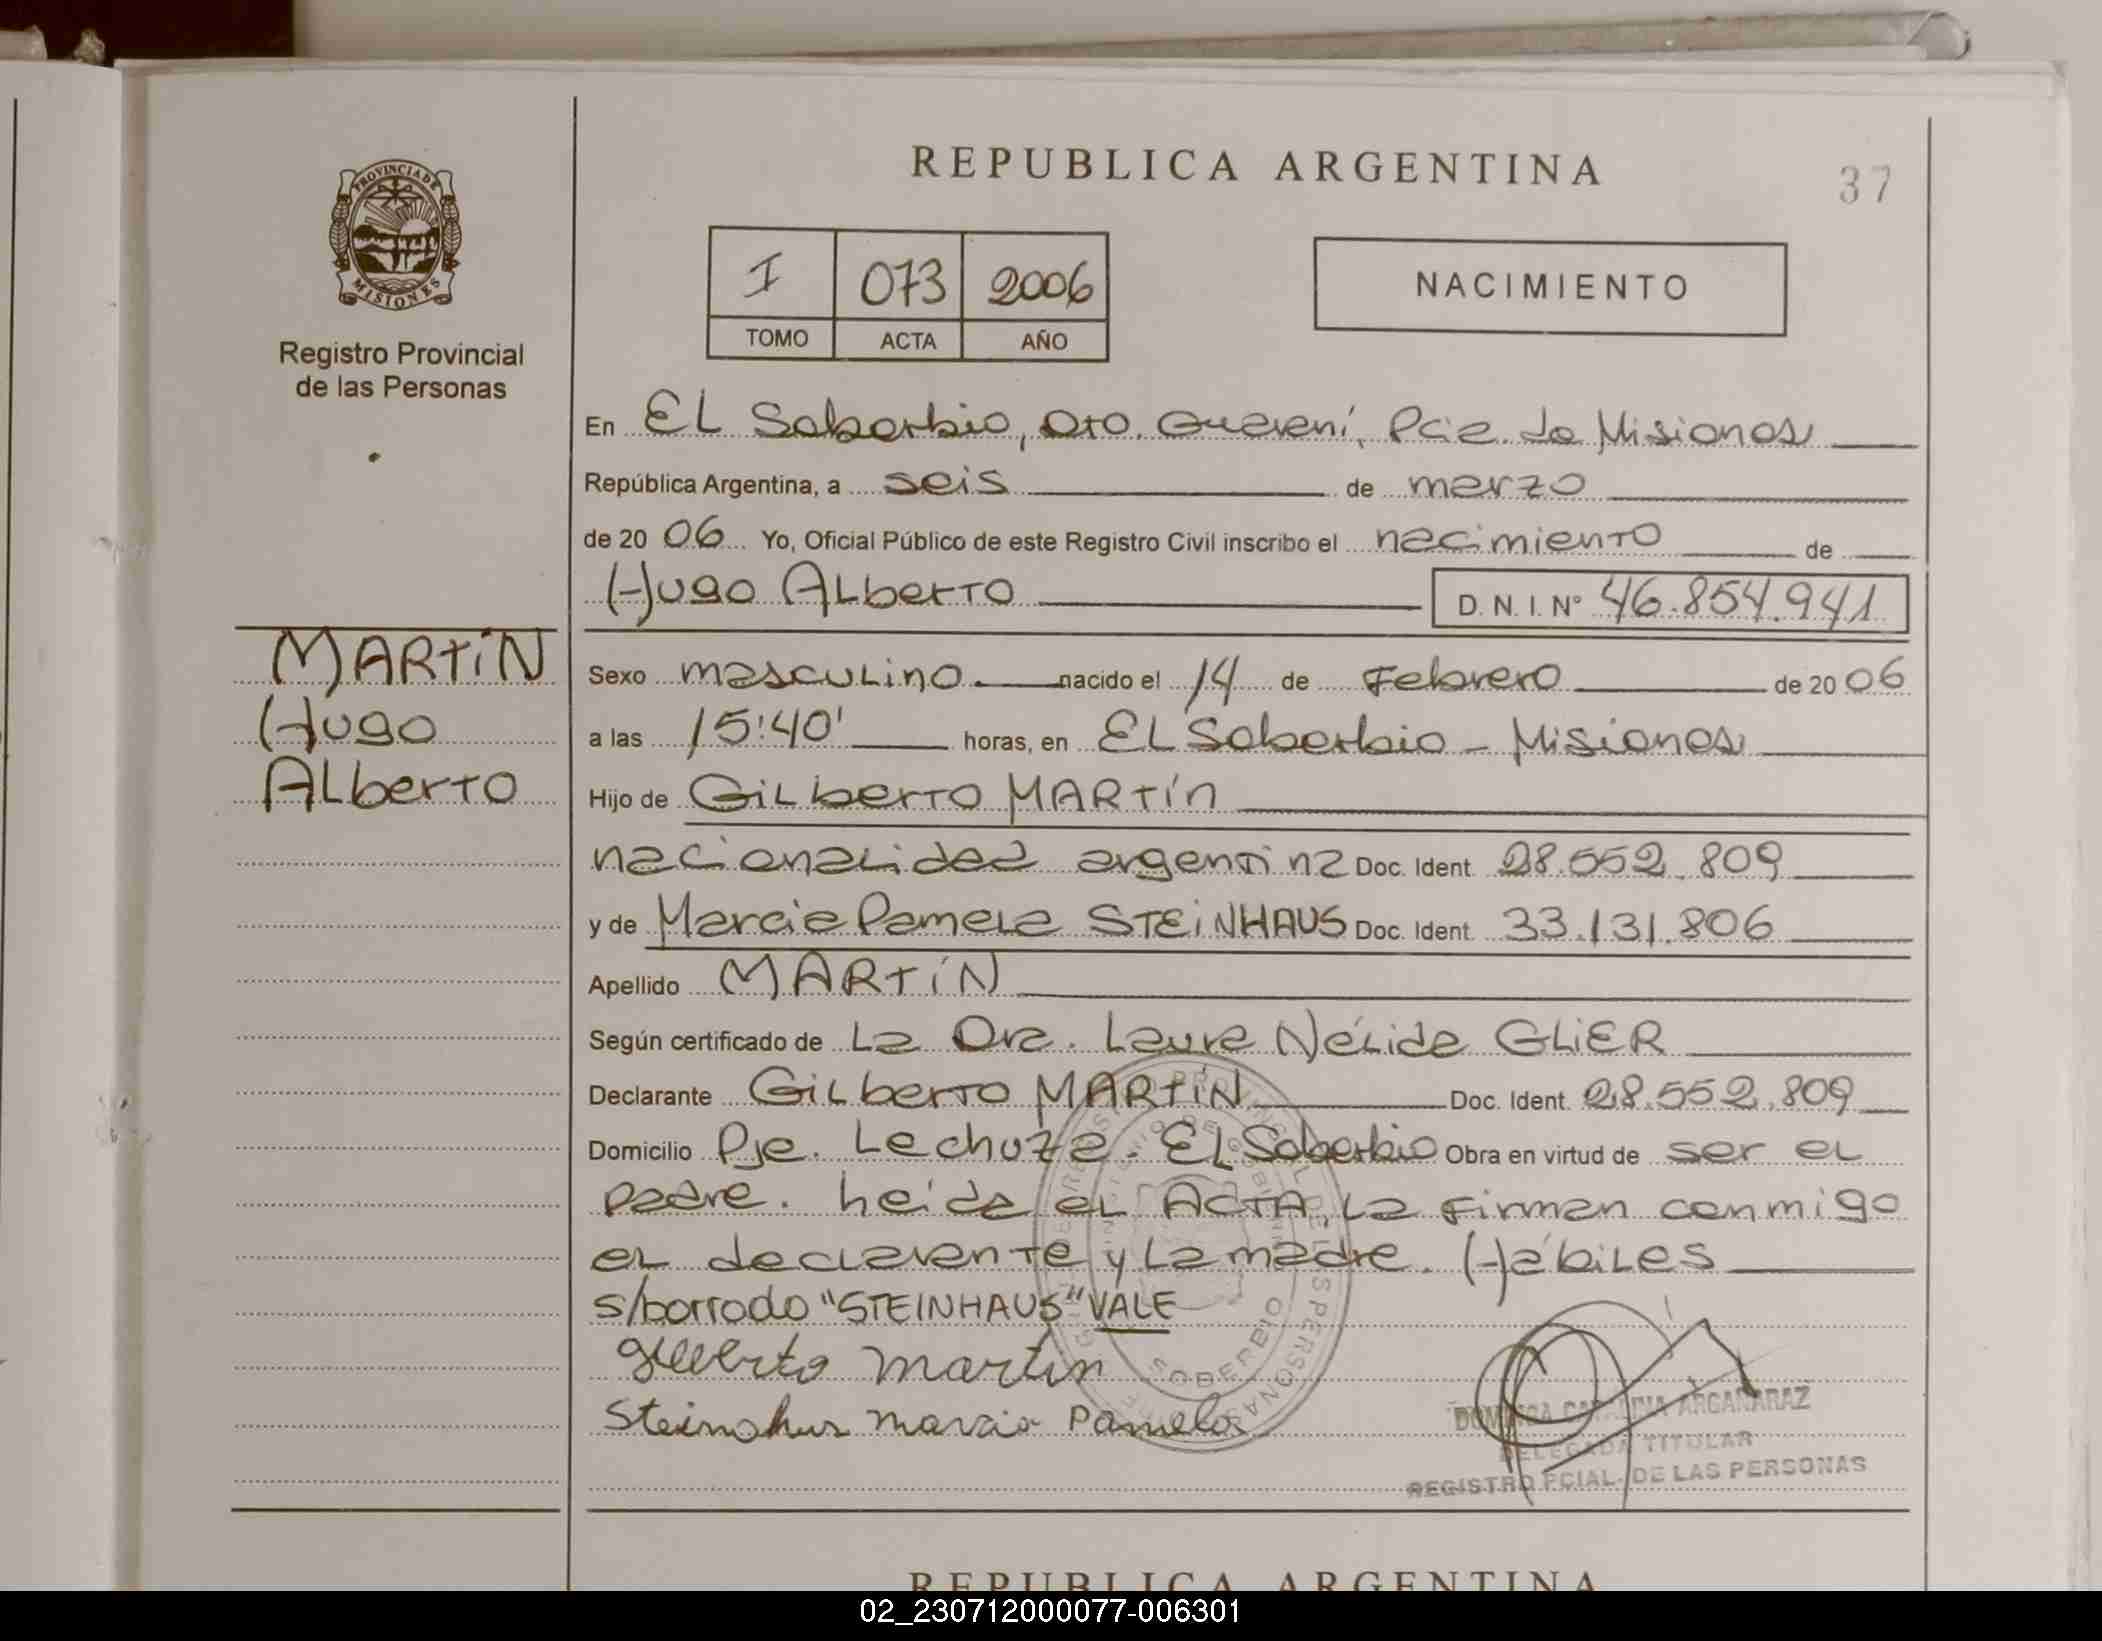 REPUBLICA ARGENTINA
37
PROVINCIA DE MISIONES
Registro Provincial
de las Personas
I 073 2006
TOMO ACTA AÑO
NACIMIENTO
En EL Soberbio, Dto. Guaraní, Pcia. de Misiones
República Argentina, a seis de marzo
de 20 06 Yo, Oficial Público de este Registro Civil inscribo el nacimiento de
Hugo Alberto D. N. I. Nº 46.854.941
MARTíN
Hugo
Alberto
Sexo masculino nacido el 14 de Febrero de 20 06
a las 15:40' horas, en EL Soberbio - Misiones
Hijo de Gilberto MARTín
nacionalidad argentina Doc. Ident. 28.552.809
y de Marcia Pamela STEiNHAUS Doc. Ident. 33.131.806
Apellido MARTíN
Según certificado de La Dra. Laura Nélida GLiER
Declarante Gilberto MARTíN Doc. Ident. 28.552.809
Domicilio Pje. Lechuza - EL Soberbio Obra en virtud de ser el
padre. Leída el ACTA, la firman conmigo
el declarante y la madre. Hábiles
s/borrado "STEINHAUS" VALE
Gilberto Martin
Steinahus Marcia Pamela
SOBERBIO
DOMINGA CATALINA ARGAÑARAZ
DELEGADA TITULAR
REGISTRO PCIAL. DE LAS PERSONAS
REPUBLICA ARGENTINA
02_230712000077-006301